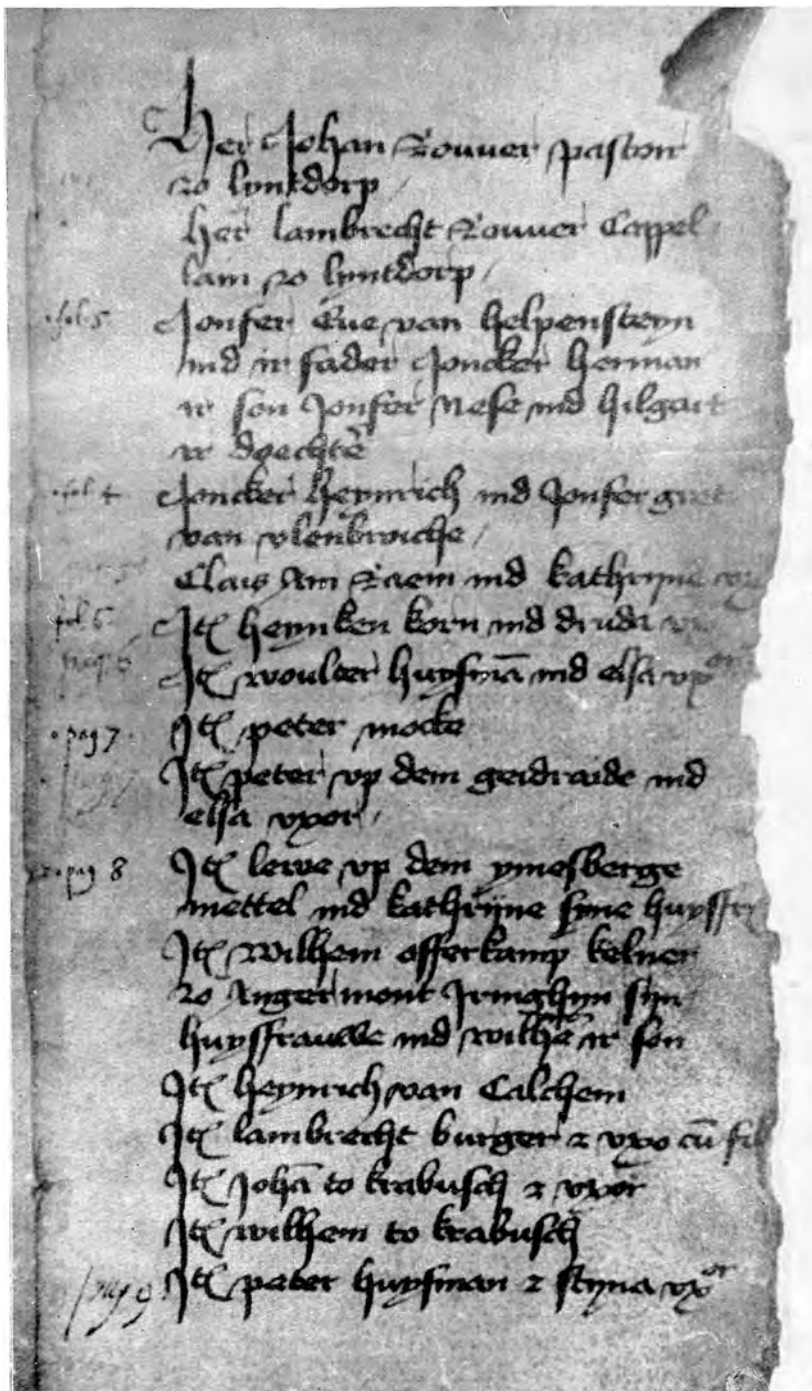 Her Johan Rouver pastoir
zo lyntdorp
her lambrecht Rouver Cappel
lain zo lyntdorp
fol 5 Jonfer Eue van helpensteyn
ind ir fader Joncker Herman
ir son Jonfer Nese ind hilgart
ir doechtē
fol 4 Joncker Heynrich ind Jonfer gret
van vlenbroiche
Clais Am Raem ind kathryne
fol 6 Itē heynken korn ind druda
Itē woulter huysmā ind elsa vxor
pag 7 Itē peter mocke
Itē peter vp dem geidraide ind
elsa vxor
pag 8 Itē lewe vp dem ymesberge
mettel ind kathryne syne huysfr
Itē wilhem offerkamp kelner
zo Angermont Irmghyn syn
huysfrauwe ind wilhē ir son
Itē heynrich van Calchem
Itē lambrecht burger z vxo cū fil
Itē Johā to krabusch z vxor
Itē wilhem to krabusch
pag 9 Itē peter huysman z styna vxor